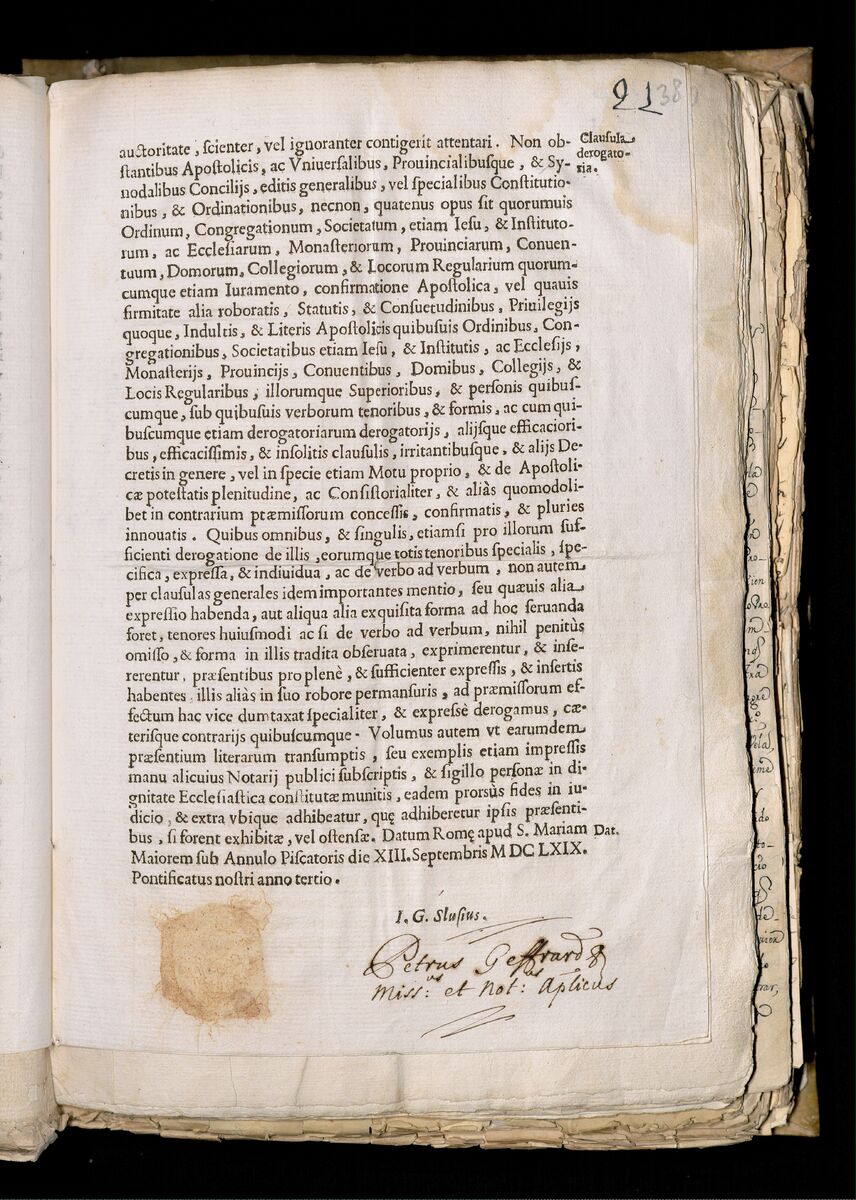 21 38
auctoritate, ſcienter, vel ignoranter contigerit attentari. Non ob-
ſtantibus Apoſtolicis, ac Vniuerſalibus, Prouincialibuſque, & Sy-
nodalibus Concilijs, editis generalibus, vel ſpecialibus Conſtitutio-
nibus, & Ordinationibus, necnon, quatenus opus ſit quorumuis
Ordinum, Congregationum, Societatum, etiam Ieſu, & Inſtituto-
rum, ac Eccleſiarum, Monaſteriorum, Prouinciarum, Conuen-
tuum, Domorum, Collegiorum, & Locorum Regularium quorum-
cumque etiam Iuramento, confirmatione Apoſtolica, vel quauis
firmitate alia roboratis, Statutis, & Conſuetudinibus, Priuilegijs
quoque, Indultis, & Literis Apoſtolicis quibuſuis Ordinibus, Con-
gregationibus, Societatibus etiam Ieſu, & Inſtitutis, ac Eccleſijs,
Monaſterijs, Prouincijs, Conuentibus, Domibus, Collegijs, &
Locis Regularibus, illorumque Superioribus, & perſonis quibuſ-
cumque, ſub quibuſuis verborum tenoribus, & formis, ac cum qui-
buſcumque etiam derogatoriarum derogatorijs, alijſque efficaciori-
bus, efficaciſſimis, & inſolitis clauſulis, irritantibuſque, & alijs De-
cretis in genere, vel in ſpecie etiam Motu proprio, & de Apoſtoli-
cæ poteſtatis plenitudine, ac Conſiſtorialiter, & aliàs quomodoli-
bet in contrarium præmiſſorum conceſſis, confirmatis, & pluries
innouatis. Quibus omnibus, & ſingulis, etiamſi pro illorum ſuf-
ficienti derogatione de illis, eorumque totis tenoribus ſpecialis, ſpe-
cifica, expreſſa, & indiuidua, ac de verbo ad verbum, non autem
per clauſulas generales idem importantes mentio, ſeu quæuis alia
expreſſio habenda, aut aliqua alia exquiſita forma ad hoc ſeruanda
foret, tenores huiuſmodi ac ſi de verbo ad verbum, nihil penitùs
omiſſo, & forma in illis tradita obſeruata, exprimerentur, & inſe-
rerentur, præſentibus pro plenè, & ſufficienter expreſſis, & inſertis
habentes, illis aliàs in ſuo robore permanſuris, ad præmiſſorum ef-
fectum hac vice dumtaxat ſpecialiter, & expreſsè derogamus, cæ-
teriſque contrarijs quibuſcumque. Volumus autem vt earumdem
præſentium literarum tranſumptis, ſeu exemplis etiam impreſſis
manu alicuius Notarij publici ſubſcriptis, & ſigillo perſonæ in di-
gnitate Eccleſiaſtica conſtitutæ munitis, eadem prorsùs fides in iu-
dicio, & extra vbique adhibeatur, quę adhiberetur ipſis præſenti-
bus, ſi forent exhibitæ, vel oſtenſæ. Datum Romę apud S. Mariam
Maiorem ſub Annulo Piſcatoris die XIII. Septembris M DC LXIX.
Pontificatus noſtri anno tertio.
Clauſula
derogato-
ria.
Dat.
I. G. Sluſius.
Petrus Geffrard
Miss:us et Not:us Aplicus